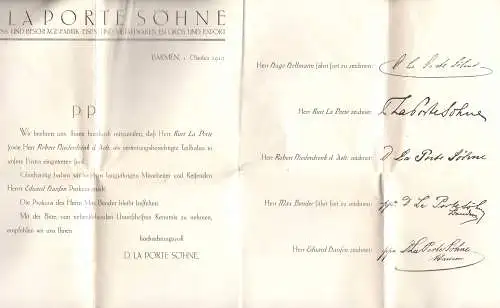 D. LA PORTE SÖHNE
UND BESCHLÄGE-FABRIK · EISEN- UND METALLWAREN EN GROS UND EXPORT
BARMEN, 1. Oktober
P. P.
Wir beehren uns, Ihnen hierdurch mitzuteilen, daß Herr Kurt La Porte
sowie Herr Robert Niederdrenk d. Jüng. als vertretungsberechtigte Teilhaber in
unsere Firma eingetreten sind.
Gleichzeitig haben wir unserem langjährigen Mitarbeiter und Reisenden
Herrn Eduard Prokura erteilt.
Die Prokura des Herrn Max Bender bleibt bestehen.
Mit der Bitte, von nebenstehenden Unterschriften Kenntnis zu nehmen,
empfehlen wir uns Ihnen
hochachtungsvoll
D. LA PORTE SÖHNE.
Herr Hugo fährt fort zu zeichnen:
D La Porte Söhne
Herr Kurt La Porte zeichnet:
D. La Porte Söhne
Herr Robert Niederdrenk d. Jüng. zeichnet:
D La Porte Söhne
Herr Max Bender fährt fort zu zeichnen:
ppa D La Porte Söhne
Bender
Herr Eduard zeichnet:
ppa D La Porte Söhne